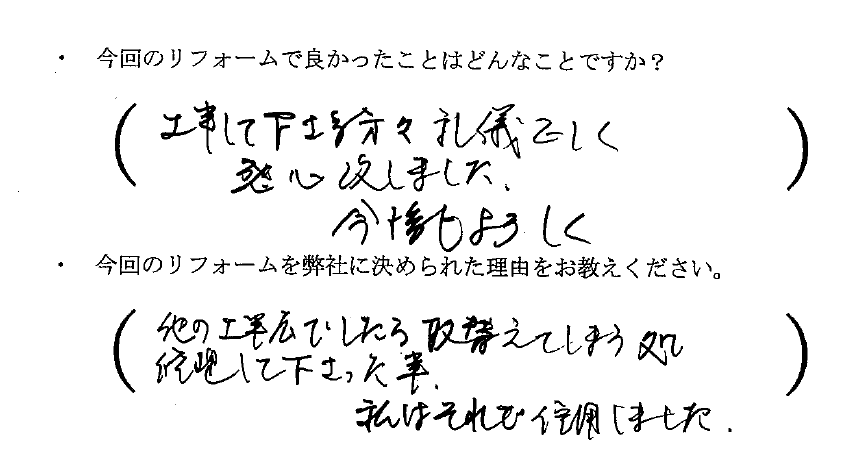 ・ 今回のリフォームで良かったことはどんなことですか？
(工事して下さる方々礼儀正しく
感心致しました、
今後もよろしく)
・ 今回のリフォームを弊社に決められた理由をお教えください。
(他の工事店でしたら取替えてしまう処
修理して下さった事、
私はそれで信用しました.)